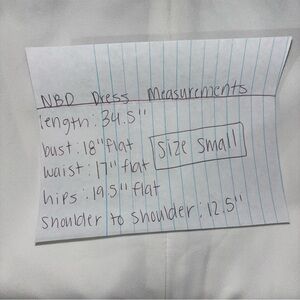 NBD Dress Measurements
length: 34.5"
bust: 18" flat
waist: 17" flat
Size Small
hips: 19.5" flat
shoulder to shoulder: 12.5"